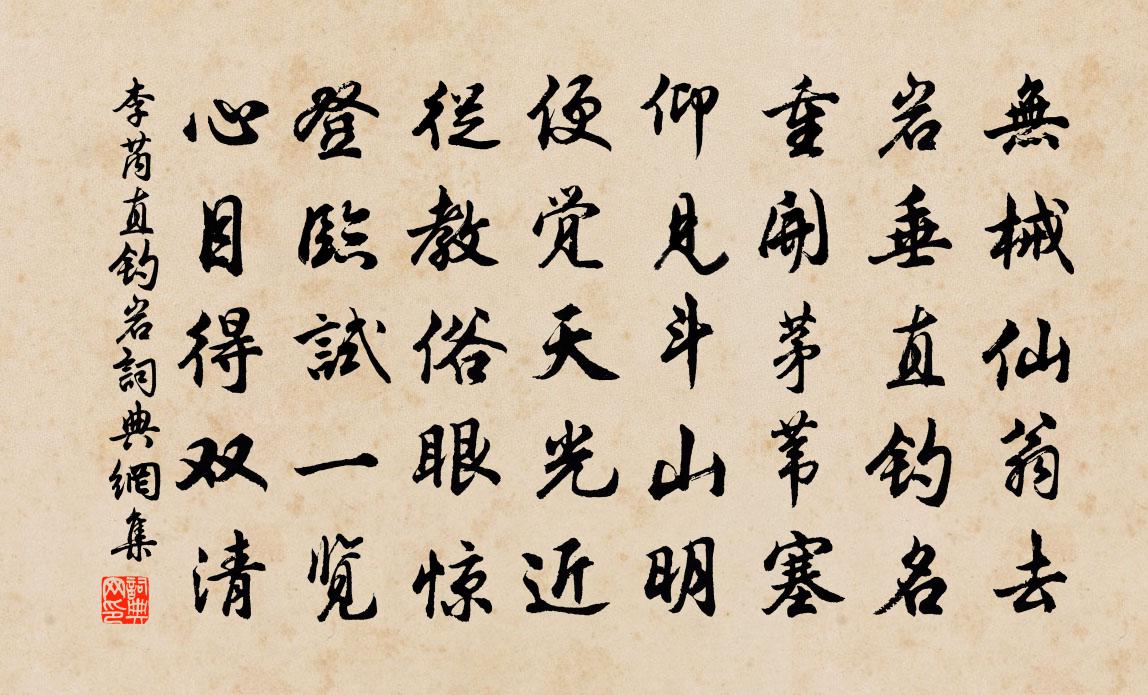 無械仙翁去
岩垂直钓名
重開茅苇塞
仰見斗山明
便觉天光近
從教俗眼惊
登臨試一览
心目得双清
李芮直钓岩詞典網集
詞典网印